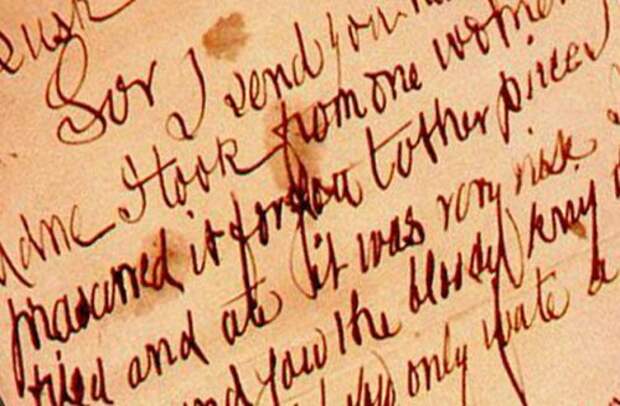 Lusk
Sor I send you
idne I took from one women
prasarved it for you tother piece I
fried and ate it was very nise
nd you the bloody knif
you only wate a